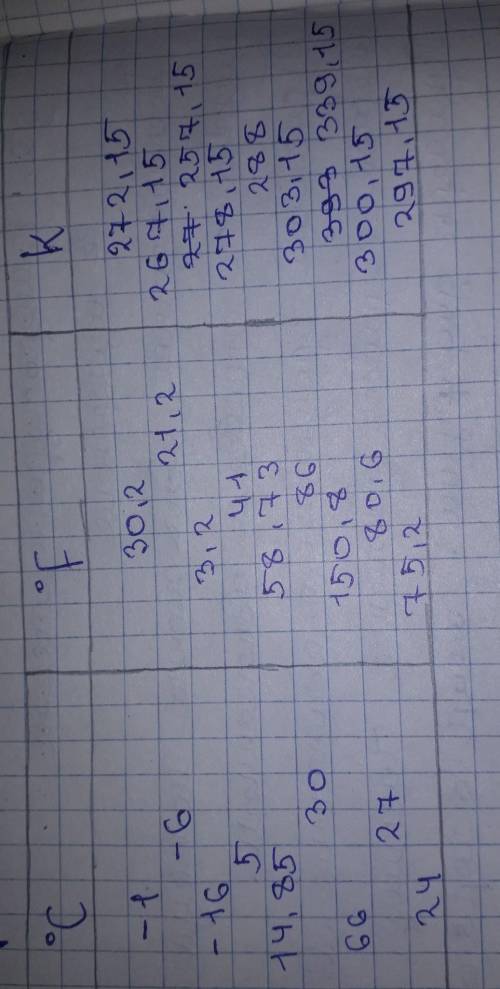 °C °F K
-1 30,2 272,15
-6 21,2 267,15
-16 3,2 27 257,15
5 41 278,15
14,85 58,73 288
30 86 303,15
66 150,8 393 339,15
27 80,6 300,15
24 75,2 297,15